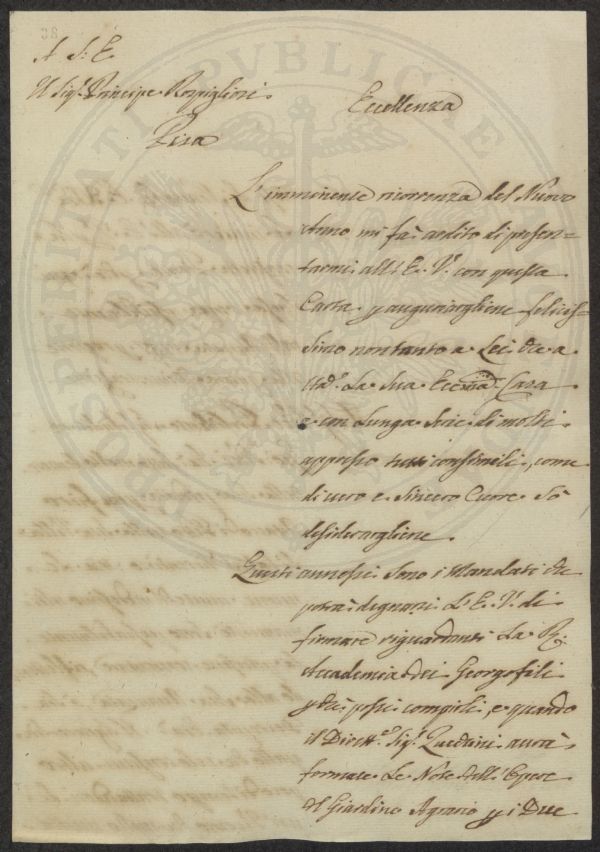 38
A S: E
Il Sig:r Principe Rospigliosi
Pisa
Eccellenza
L'imminente ricorrenza del Nuovo
Anno mi fà ardito di presen=
tarmi all'E. V.a con questa
Carta p augurargliene felicis=
simo non tanto a Lei, che a
tta. La Sua Eccma. Casa
e con Lunga Serie di molti
appresso tutti consimili, come
di vero e Sincero Cuore Sò
desiderargliene.
Questi annessi Sono i Mandati che
potrà degnarsi L'E. V. di
firmare riguardanti La R.
Accademia dei Georgofili
p che possi compirli, e quando
il Dirett.e Sig.r Zucchini avrà
formate Le Note dell'
Al Giardino Agrario p i Due
PROSPERITATI PVBLICAE